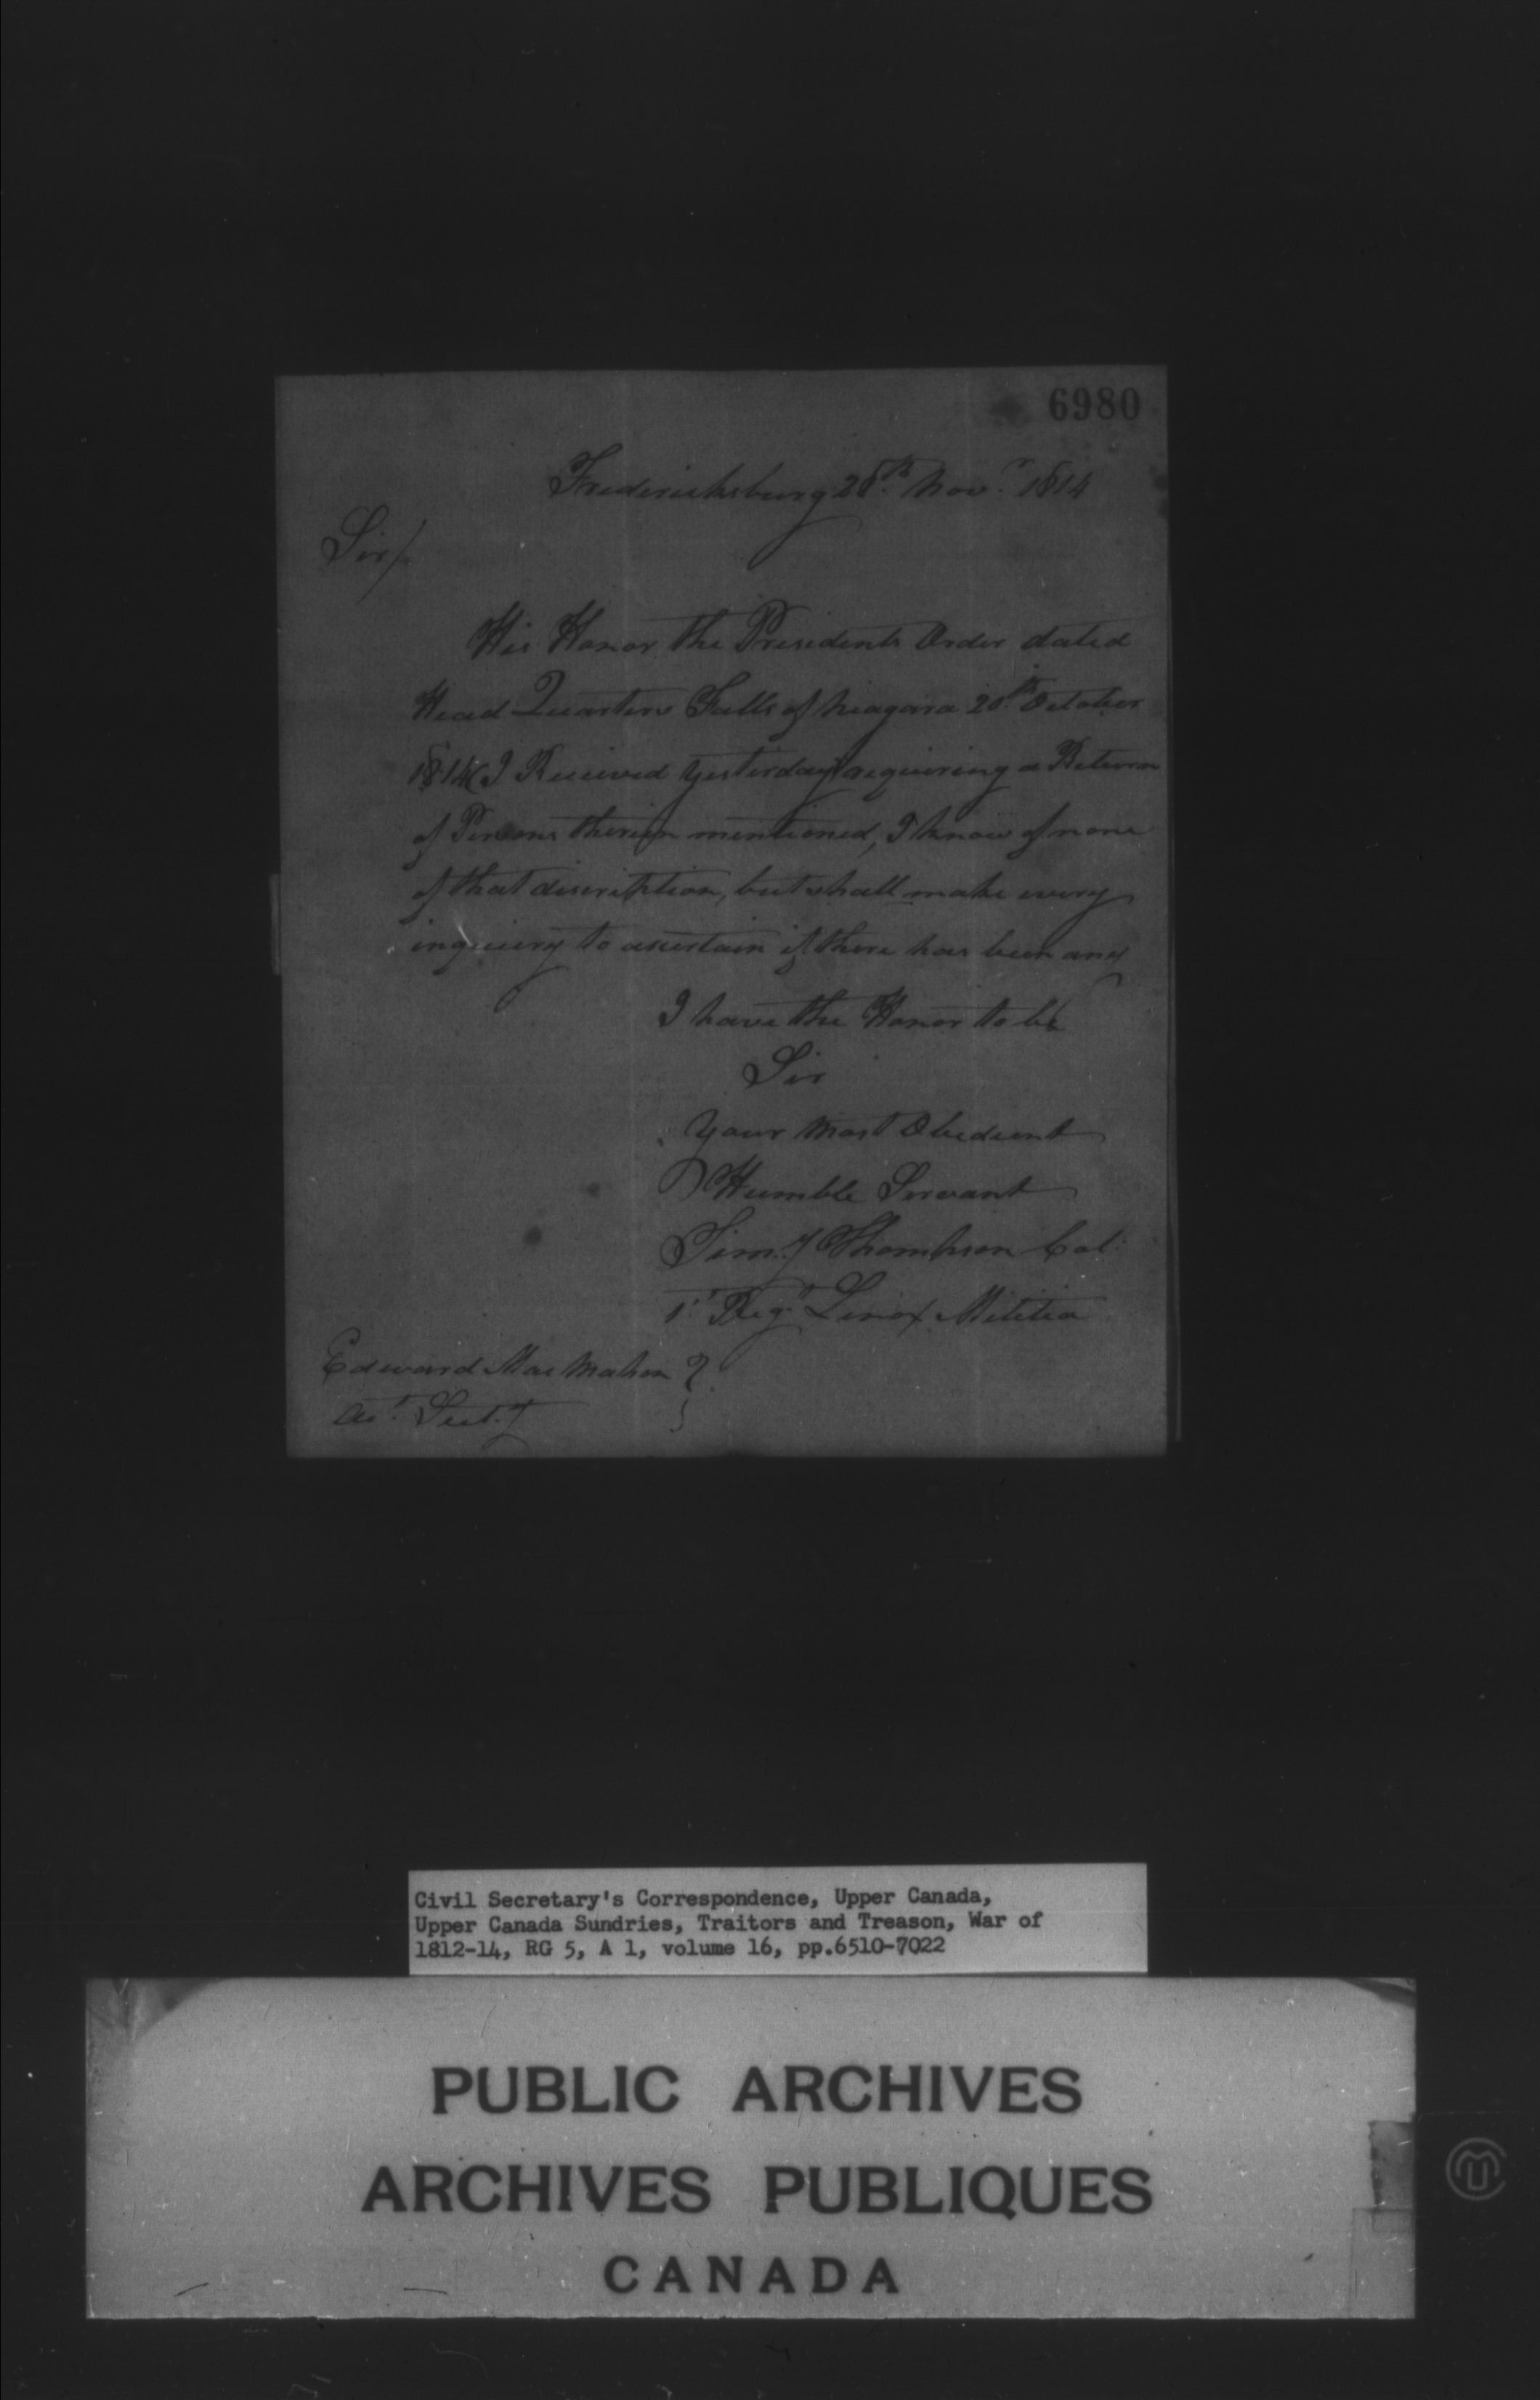 6980
Fredericksburg 28th Novr. 1814
Sir/
His Honor the Presidents Order dated
Head Quarters Falls of Niagara 20th October
1814 (I Received Yesterday) requiring a Return
of Persons therein mentioned, I know of none
of that discription, but shall make every
inquiery to ascertain if there has been any
I have the Honor to be
Sir
Your Most Obedient
Humble Servant
Timy Thompson Col:
1st Regt Lenox Militia
Edward MacMahon }
Ast. Secty }
Civil Secretary's Correspondence, Upper Canada,
Upper Canada Sundries, Traitors and Treason, War of
1812-14, RG 5, A 1, volume 16, pp.6510-7022
PUBLIC ARCHIVES
ARCHIVES PUBLIQUES
CANADA